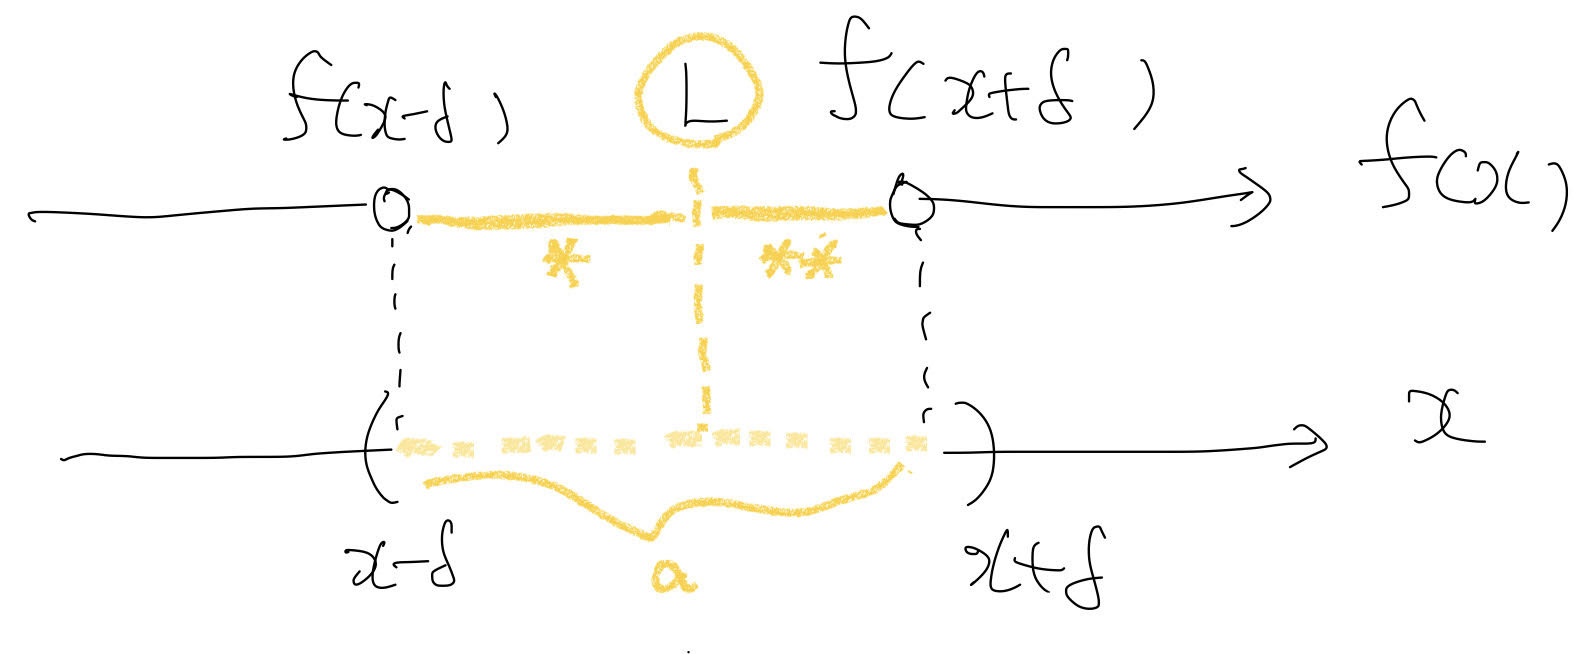 f(x-δ) L f(x+δ)
f(x)
* **
x
x-δ x+δ
a